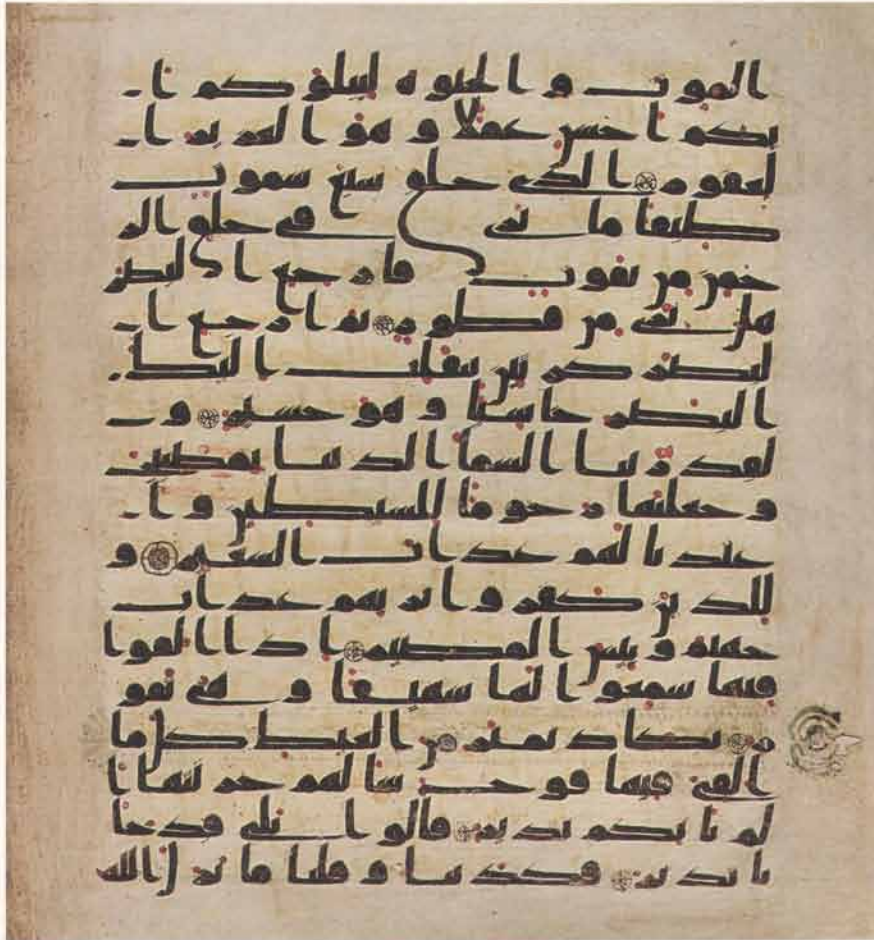 الموت و الحيوة ليبلوكم ا
يكم احسن عملا و هو العزيز ا
لغفور الذي خلق سبع سموت
طبقا ما ترى في خلق الر
حمن من تفوت فارجع البصر
هل ترى من فطور ثم ارجع ا
لبصر كرتين ينقلب اليك
البصر خاسئا و هو حسير و
لقد زينا السما الدنيا بمصبيح
و جعلنها رجوما للشيطين و ا
عتدنا لهم عذاب السعير و
للذين كفروا بربهم عذاب
جهنم و بئس المصير اذا القوا
فيها سمعوا لها شهيقا و هي تفو
ر تكاد تميز من الغيظ كلما
القي فيها فوج سالهم خزنتها ا
لم ياتكم نذير قالوا بلى قد جا
نا نذير فكذبنا و قلنا ما نزل الله